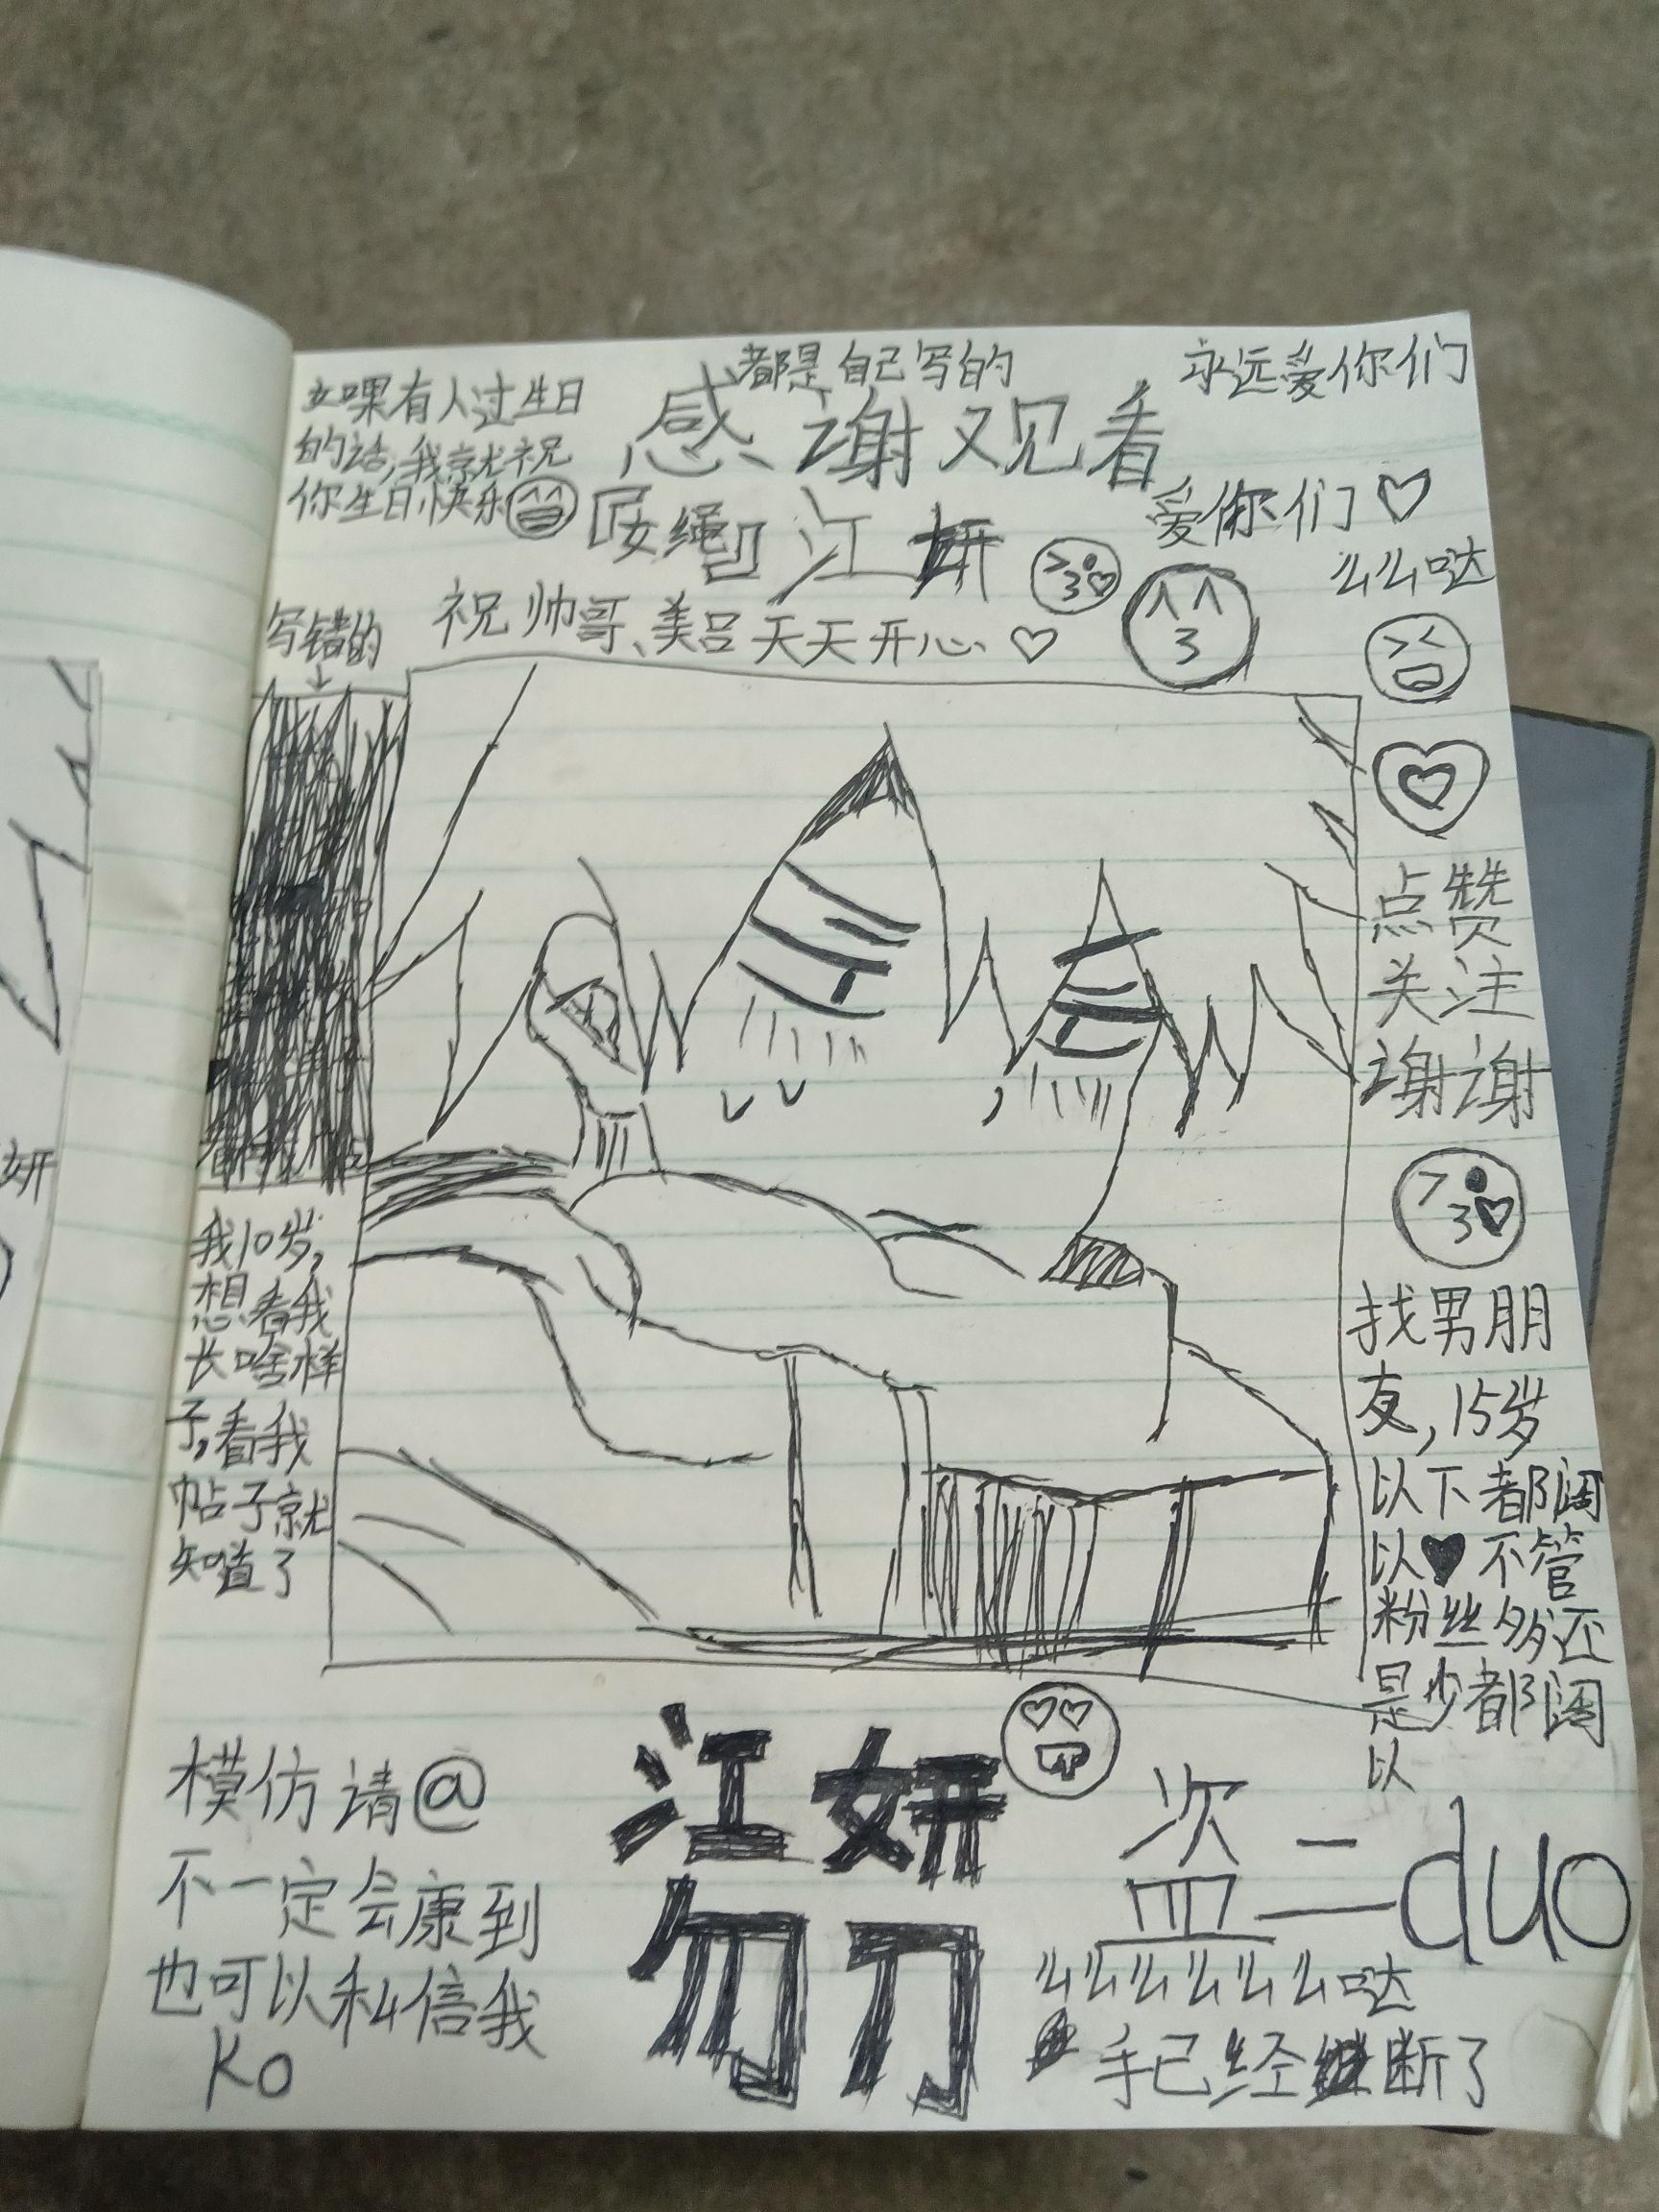 都是自己写的
永远爱你们
如果有人过生日
的话,我就祝
你生日快乐
感谢观看
江妍
爱你们
么么哒
祝帅哥、美吕天天开心
写错的
点赞
关注
谢谢
我10岁,
想看我
长啥样
子,看我
帖子就
知道了
找男朋
友,15岁
以下都阔
以不管
粉丝多还
是少都阔
以
模仿请@
不一定会康到
也可以私信我
KO
江妍
盗二duo
么么么么么么哒
手已经断了
妍